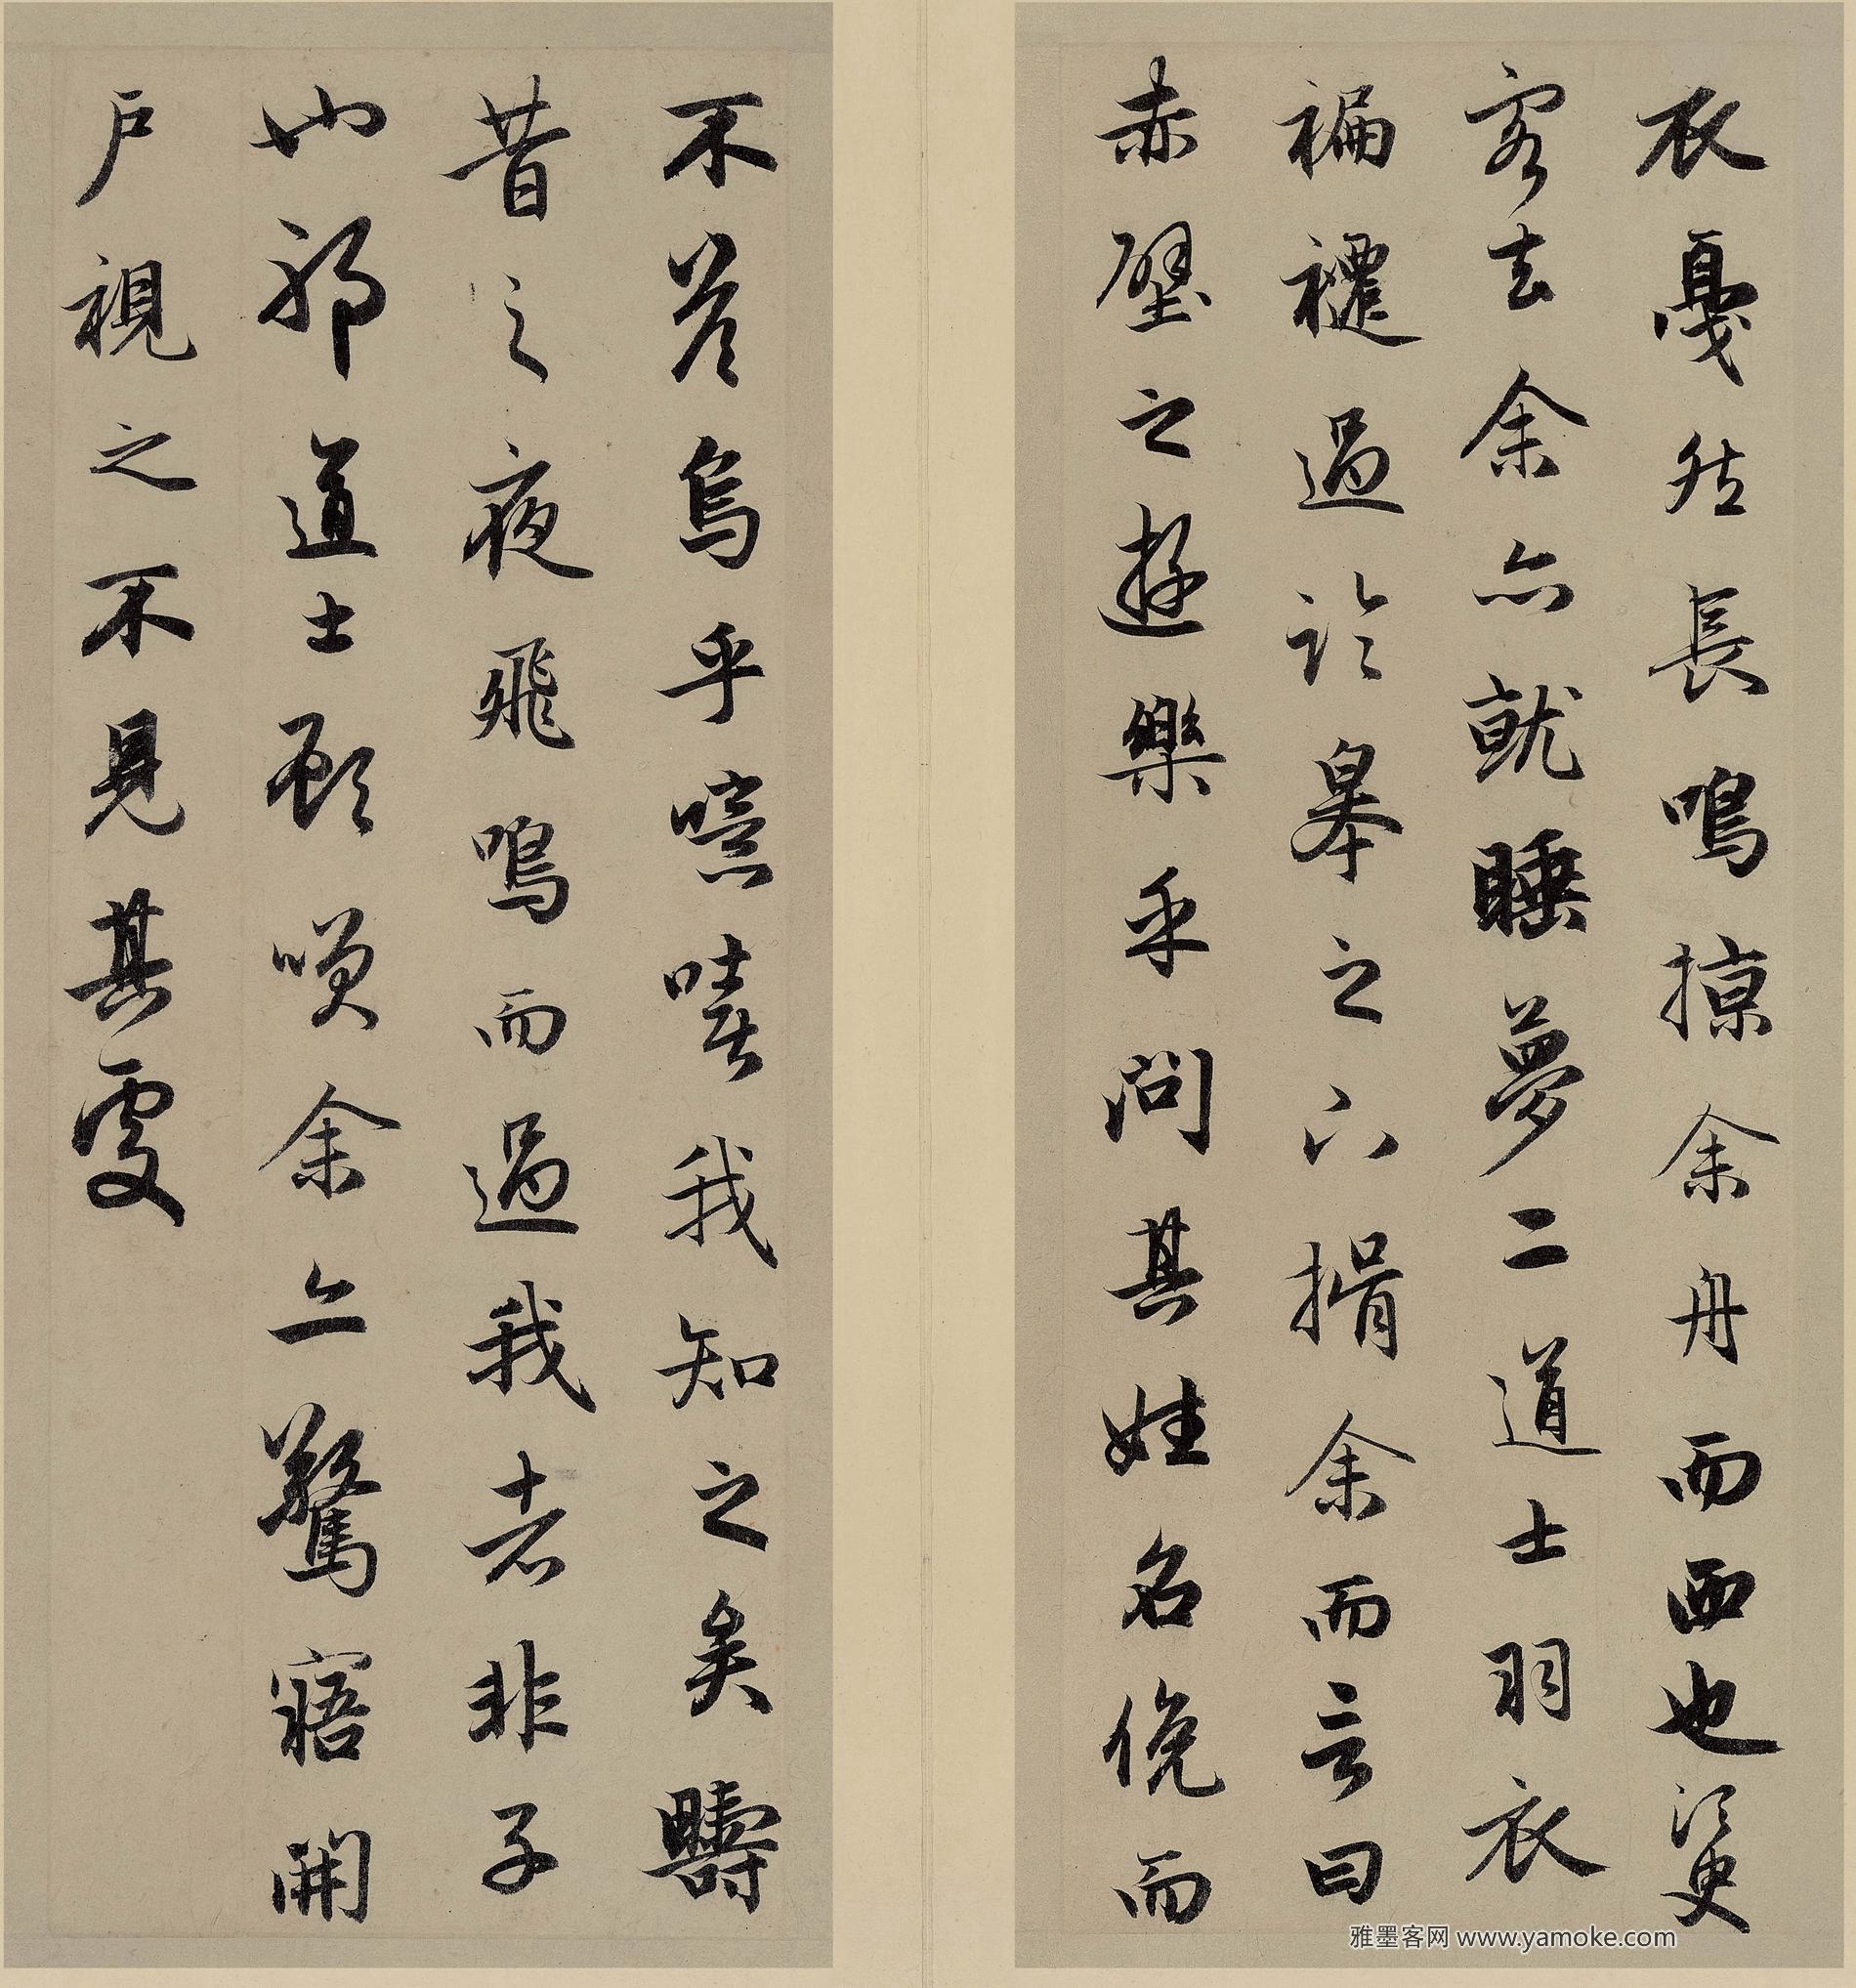 衣戛然長鳴掠余舟而西也須臾
客去余亦就睡夢二道士羽衣
褊褼過臨皋之下揖余而言曰
赤壁之遊樂乎問其姓名俛而
不答烏乎噫嘻我知之矣疇
昔之夜飛鳴而過我者非子
也耶道士顧笑余亦驚寤開
戶視之不見其處
雅墨客网 www.yamoke.com